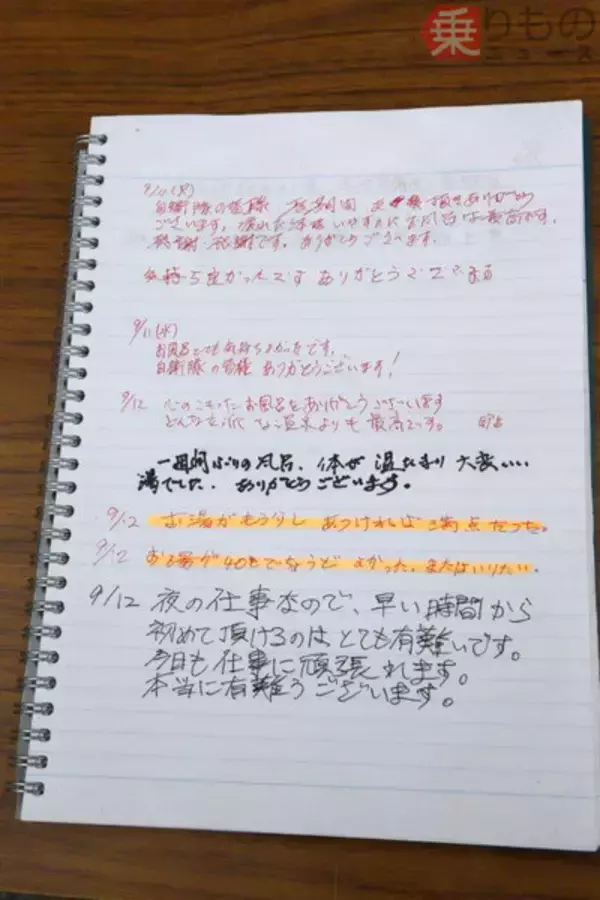 乗りもの
ニュース
自衛隊の皆様 長時間 ありがとう
ございます。疲れた体を いやすためにもお風呂は最高です。
感謝 感謝です。ありがとうございます。
気持ち良かったです ありがとうございます
9/11(水)
お風呂とても気持ちよかったです。
自衛隊の皆様 ありがとうございます!
9/12 心のこもったお風呂をありがとうございます
どんな立派な温泉よりも最高です。
一週間ぶりの風呂、体が温たまり大変いい
湯でした、ありがとうございます。
9/12 お湯がもう少し あつければ満点だった。
9/12 お湯が40℃でちょうど よかった。またはいりたい。
9/12 夜の仕事なので、早い時間から
初めて頂けるのはとても有難いです。
今日も仕事に頑張れます。
本当に有難うございます。